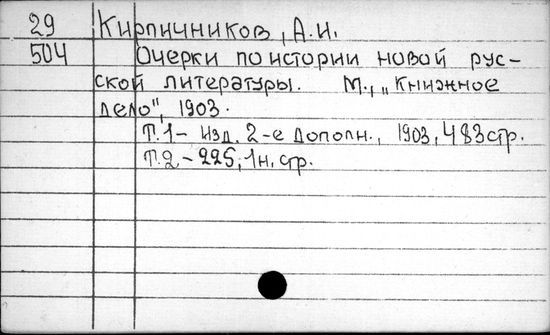 29 Кирпичников, А.И.
504 Очерки по истории новой рус-
ской литературы. М., „Книжное
дело", 1903.
Т.1 - Изд. 2-е дополн., 1903, 483 стр.
Т.2 - 225, 1н. стр.